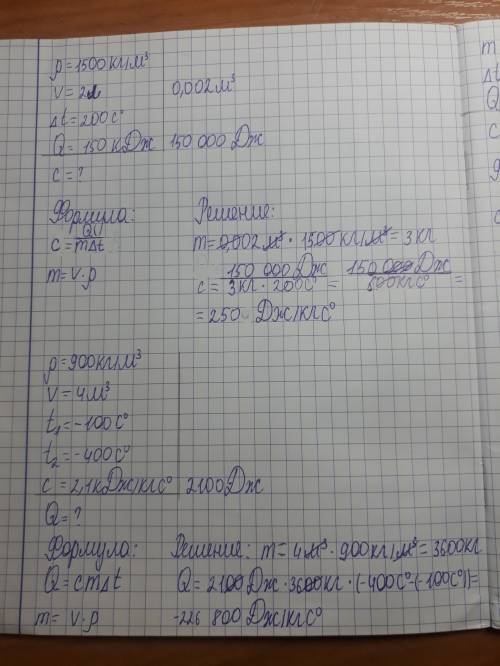 ρ = 1500 кг/м³
V = 2л 0,002 м³
Δt = 200 С°
Q = 150 кДж 150 000 Дж
c = ?
Формула: Решение:
c = Q/mΔt m = 0,002 м³ · 1500 кг/м³ = 3 кг
m = V·ρ c = 150 000 Дж / 3 кг · 200С° = 150 000 Дж / 600 кг С° =
= 250 Дж/кг С°
ρ = 900 кг/м³
V = 4 м³
t₁ = -100 С°
t₂ = -400 С°
c = 2,1 кДж/кг С° 2100 Дж
Q = ?
Формула: Решение: m = 4 м³ · 900 кг/м³ = 3600 кг
Q = cmΔt Q = 2100 Дж · 3600 кг · (-400 С° - (-100 С°)) =
m = V·ρ -226 800 Дж/кг С°
m
Δt
Q
c